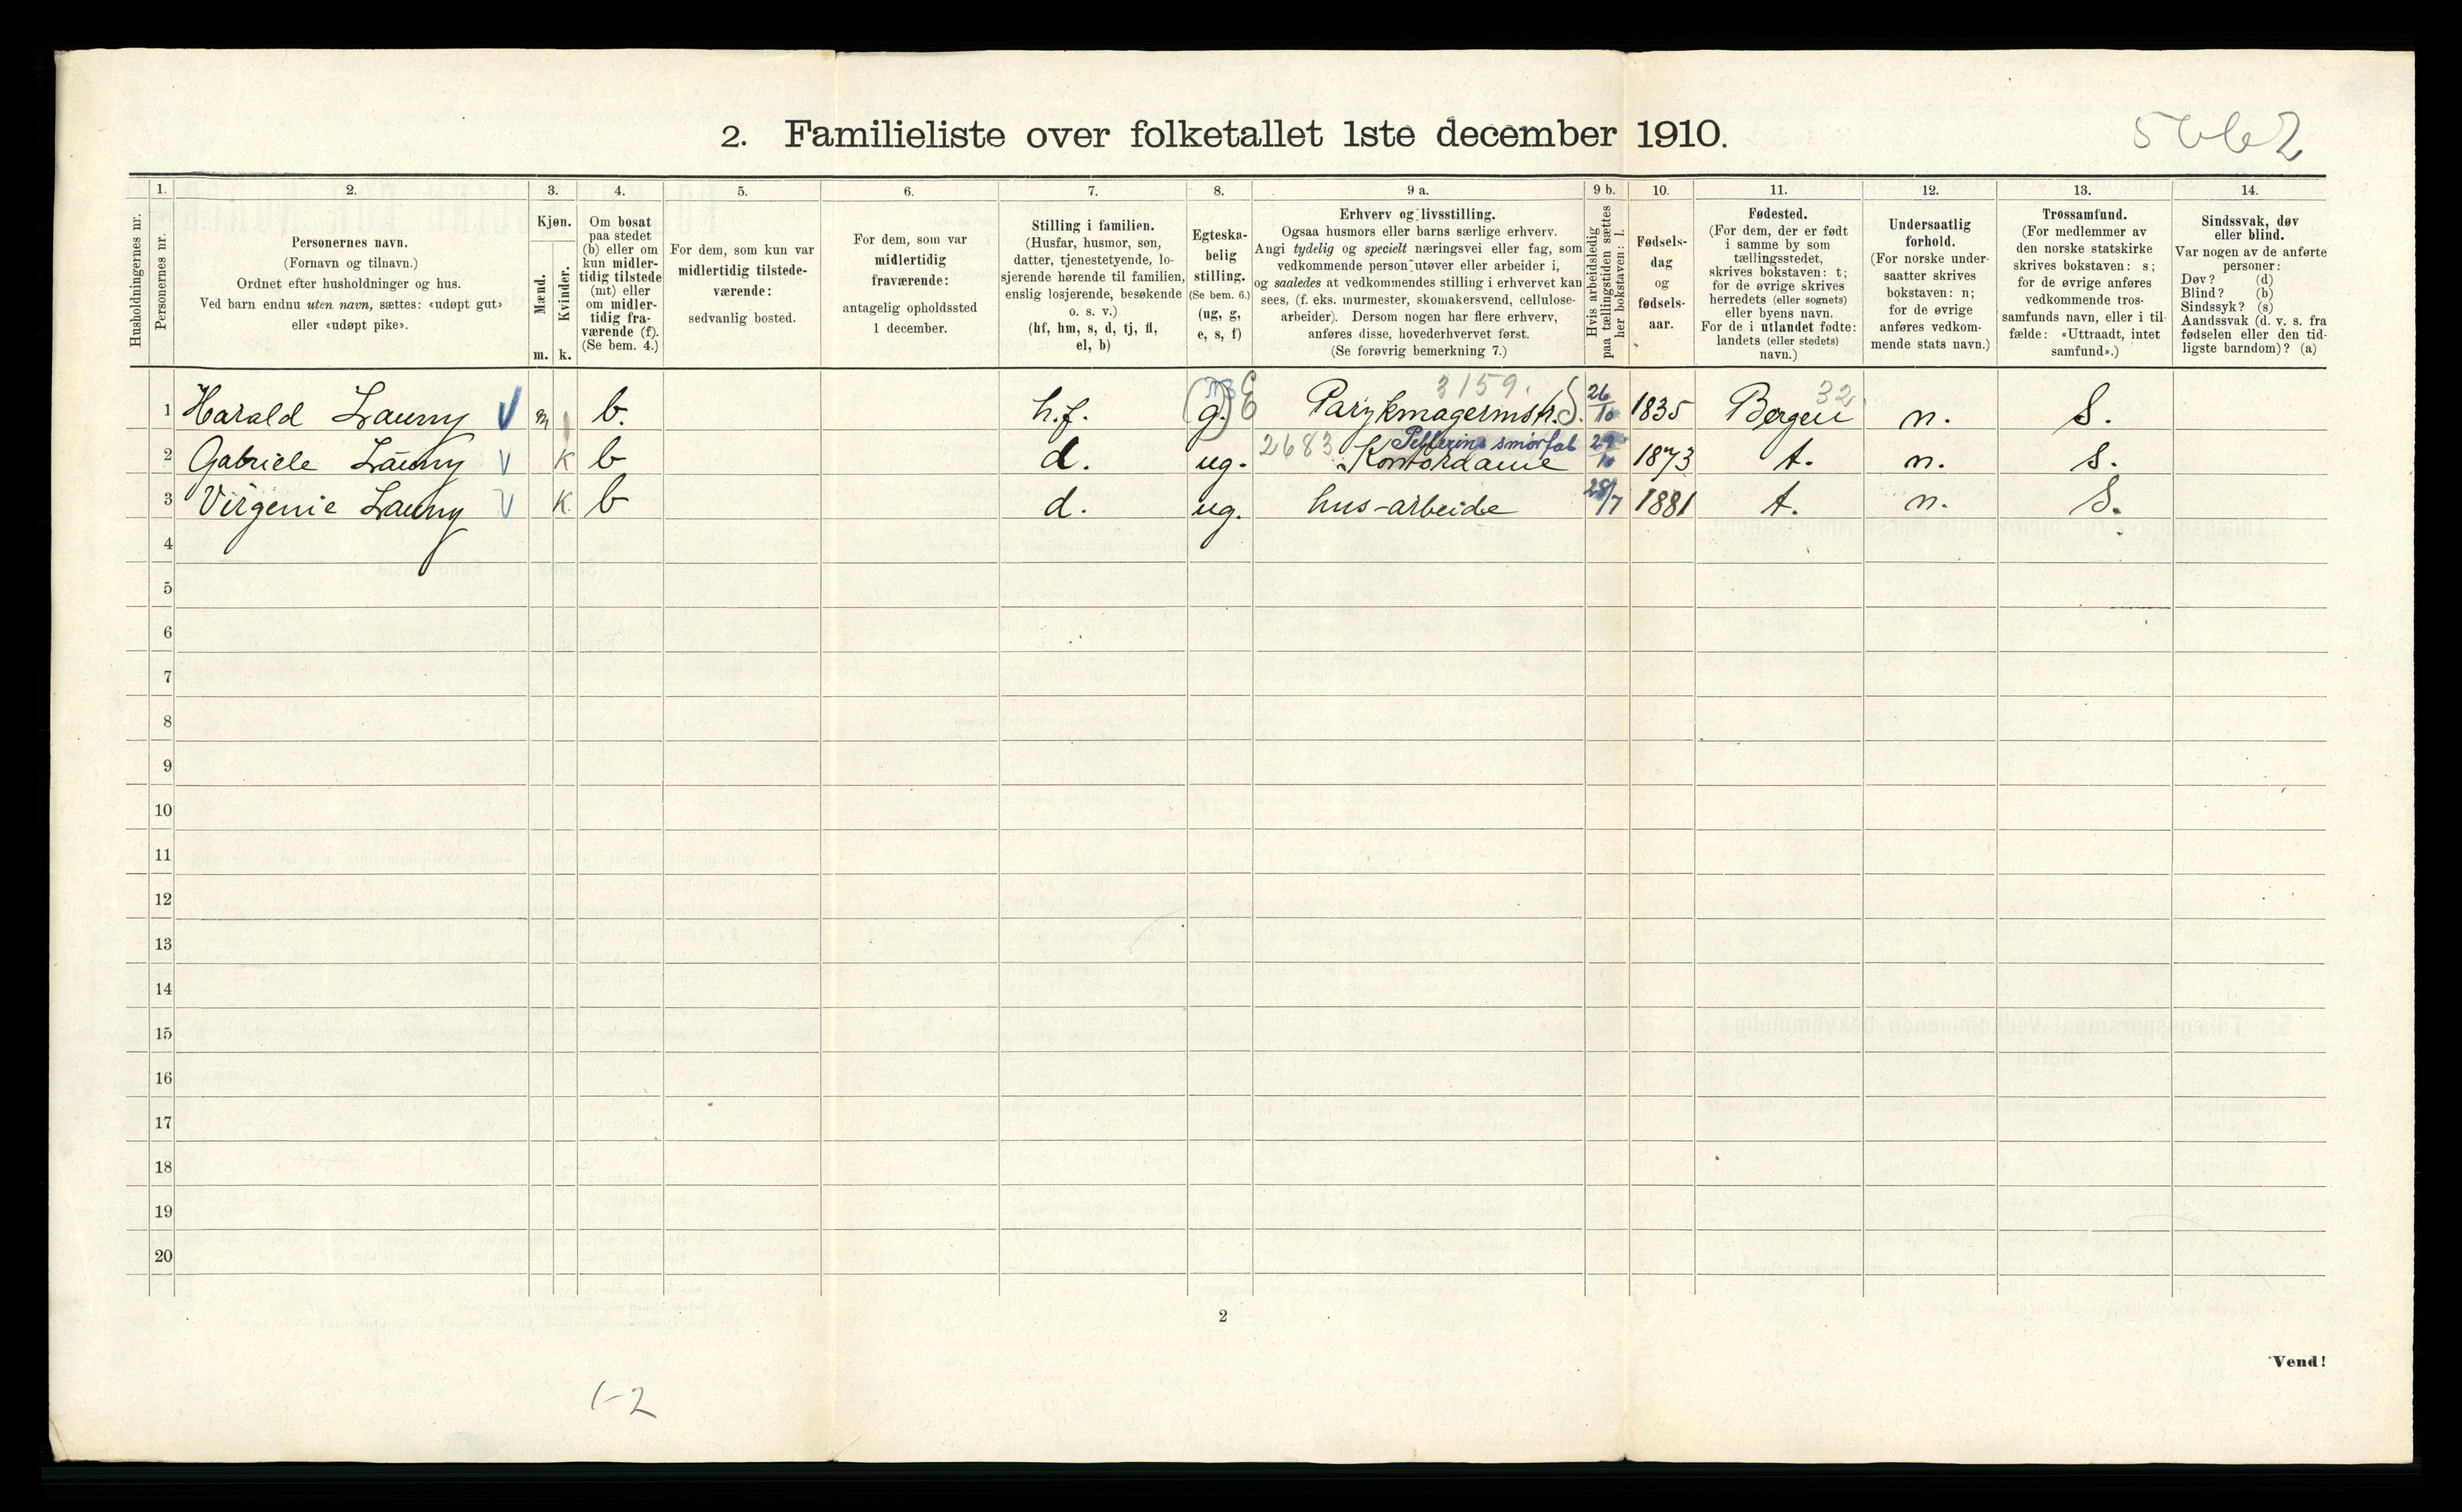 5662
2. Familieliste over folketallet 1ste december 1910.
1. 2. 3. 4. 5. 6. 7. 8. 9 a. 9 b. 10. 11. 12. 13. 14.
Husholdningernes nr.
Personernes nr.
Personernes navn.
(Fornavn og tilnavn.)
Ordnet efter husholdninger og hus.
Ved barn endnu uten navn, sættes: «udøpt gut»
eller «udøpt pike».
Kjøn.
Mænd.
Kvinder.
m. k.
Om bosat
paa stedet
(b) eller om
kun midler-
tidig tilstede
(mt) eller
om midler-
tidig fra-
værende (f).
(Se bem. 4.)
For dem, som kun var
midlertidig tilstede-
værende:
sedvanlig bosted.
For dem, som var
midlertidig
fraværende:
antagelig opholdssted
1 december.
Stilling i familien.
(Husfar, husmor, søn,
datter, tjenestetyende, lo-
sjerende hørende til familien,
enslig losjerende, besøkende
o. s. v.)
(hf, hm, s, d, tj, fl,
el, b)
Egteska-
belig
stilling.
(Se bem. 6.)
(ug, g,
e, s, f)
Erhverv og livsstilling.
Ogsaa husmors eller barns særlige erhverv.
Angi tydelig og specielt næringsvei eller fag, som
vedkommende person utøver eller arbeider i,
og saaledes at vedkommendes stilling i erhvervet kan
sees, (f. eks. murmester, skomakersvend, cellulose-
arbeider). Dersom nogen har flere erhverv,
anføres disse, hovederhvervet først.
(Se forøvrig bemerkning 7.)
Hvis arbeidsledig
paa tællingstiden sættes
her bokstaven: l.
Fødsels-
dag
og
fødsels-
aar.
Fødested.
(For dem, der er født
i samme by som
tællingsstedet,
skrives bokstaven: t;
for de øvrige skrives
herredets (eller sognets)
eller byens navn.
For de i utlandet fødte:
landets (eller stedets)
navn.)
Undersaatlig
forhold.
(For norske under-
saatter skrives
bokstaven: n;
for de øvrige
anføres vedkom-
mende stats navn.)
Trossamfund.
(For medlemmer av
den norske statskirke
skrives bokstaven: s;
for de øvrige anføres
vedkommende tros-
samfunds navn, eller i til-
fælde: «Uttraadt, intet
samfund».)
Sindssvak, døv
eller blind.
Var nogen av de anførte
personer:
Døv? (d)
Blind? (b)
Sindssyk? (s)
Aandssvak (d. v. s. fra
fødselen eller den tid-
ligste barndom)? (a)
3159. 32
1 Harald Launy m b. h.f. (g.) E Parykmagermstr. S. 26/10 1835 Bergen n. S.
Pellerins smørfab
2 Gabriele Launy k b d. ug. 2683 Kontordame 29/10 1873 t. n. s.
3 Virgenie Launy k. b d. ug. hus-arbeide 28/7 1881 t. n. S.
4
5
6
7
8
9
10
11
12
13
14
15
16
17
18
19
20
2
Vend!
1-2